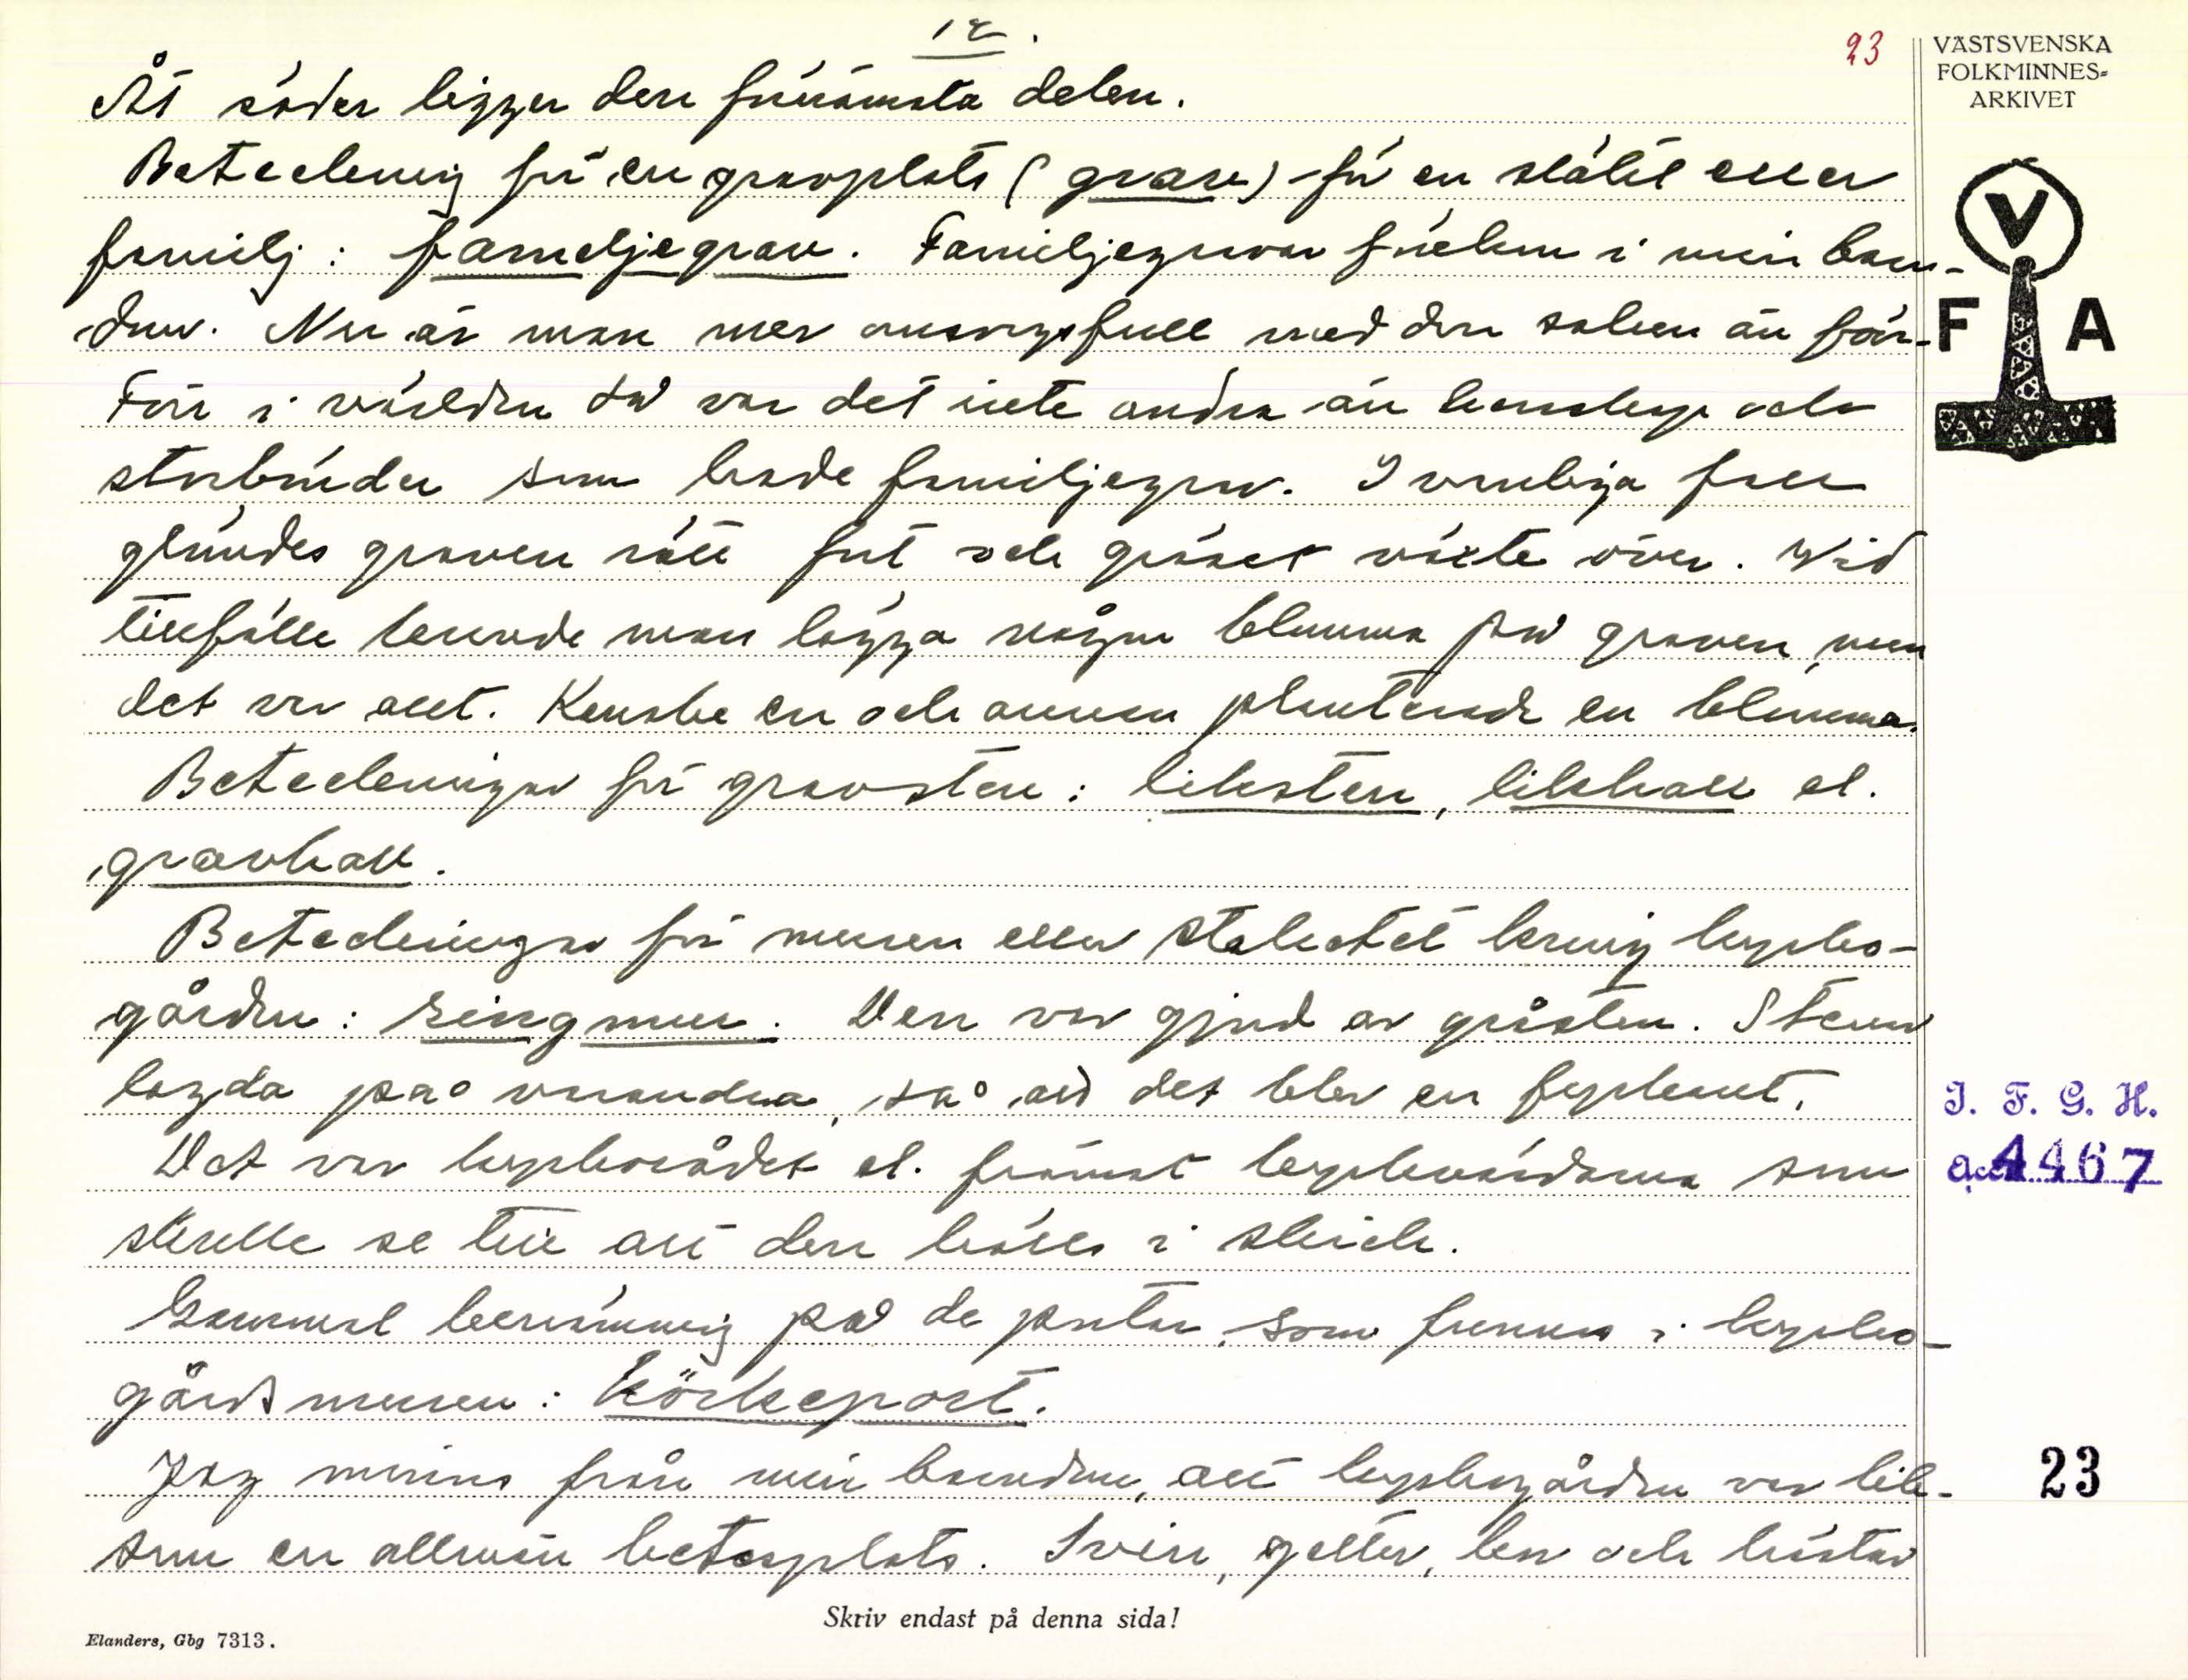 12.
23
VÄSTSVENSKA
FOLKMINNES=
ARKIVET
Åt söder ligger den förnämsta delen.
Beteckning för en gravplats (grav) för en släkt eller
familj: fameljegrav. Familjegravar förekom i min barn-
dom. Nu är man mer omsorgsfull med den saken än förr.
Förr i världen då var det inte andra än herrskap och
storbönder som hade familjegrav. I vanliga fall
glömdes graven rätt fort och gräset växte över. Vid
tillfälle kunde man lägga någon blomma på graven, men
det var allt. Kanske en och annan planterade en blomma.
Beteckningar för gravsten: liksten, likhall el.
gravhall.
Beteckningar för muren eller staketet kring kyrko-
gården: ringmur. Den var gjord av gråsten. Stenar
lagda på varandra, så att det blev en fyrkant.
Det var kyrkorådet el. främst kyrkvärdarna som
skulle se till att den hölls i skick.
Gammal benämning på de portar, som funnos i kyrko-
gårdsmuren: körkeport.
Jag minns från min barndom, att kyrkogården var lik-
som en allmän betesplats. Svin, getter, kor och hästar
V
F A
I. F. G. H.
acc 4467
23
Skriv endast på denna sida!
Elanders, Gbg 7313.